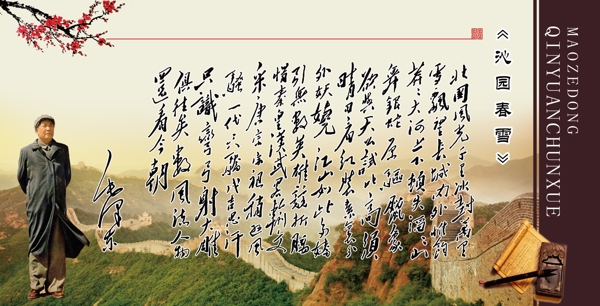 《沁园春雪》
MAOZEDONG
QINYUANCHUNXUE
北国风光千里冰封万里
雪飘望长城内外惟余
莽莽大河上下顿失滔滔山
舞银蛇原驱腊象
欲与天公试比高须
晴日看红装素裹分
外妖娆 江山如此多娇
引无数英雄竞折腰
惜秦皇汉武略输文
采唐宗宋祖稍逊风
骚一代天骄成吉思汗
只识弯弓射大雕
俱往矣数风流人物
还看今朝
毛泽东